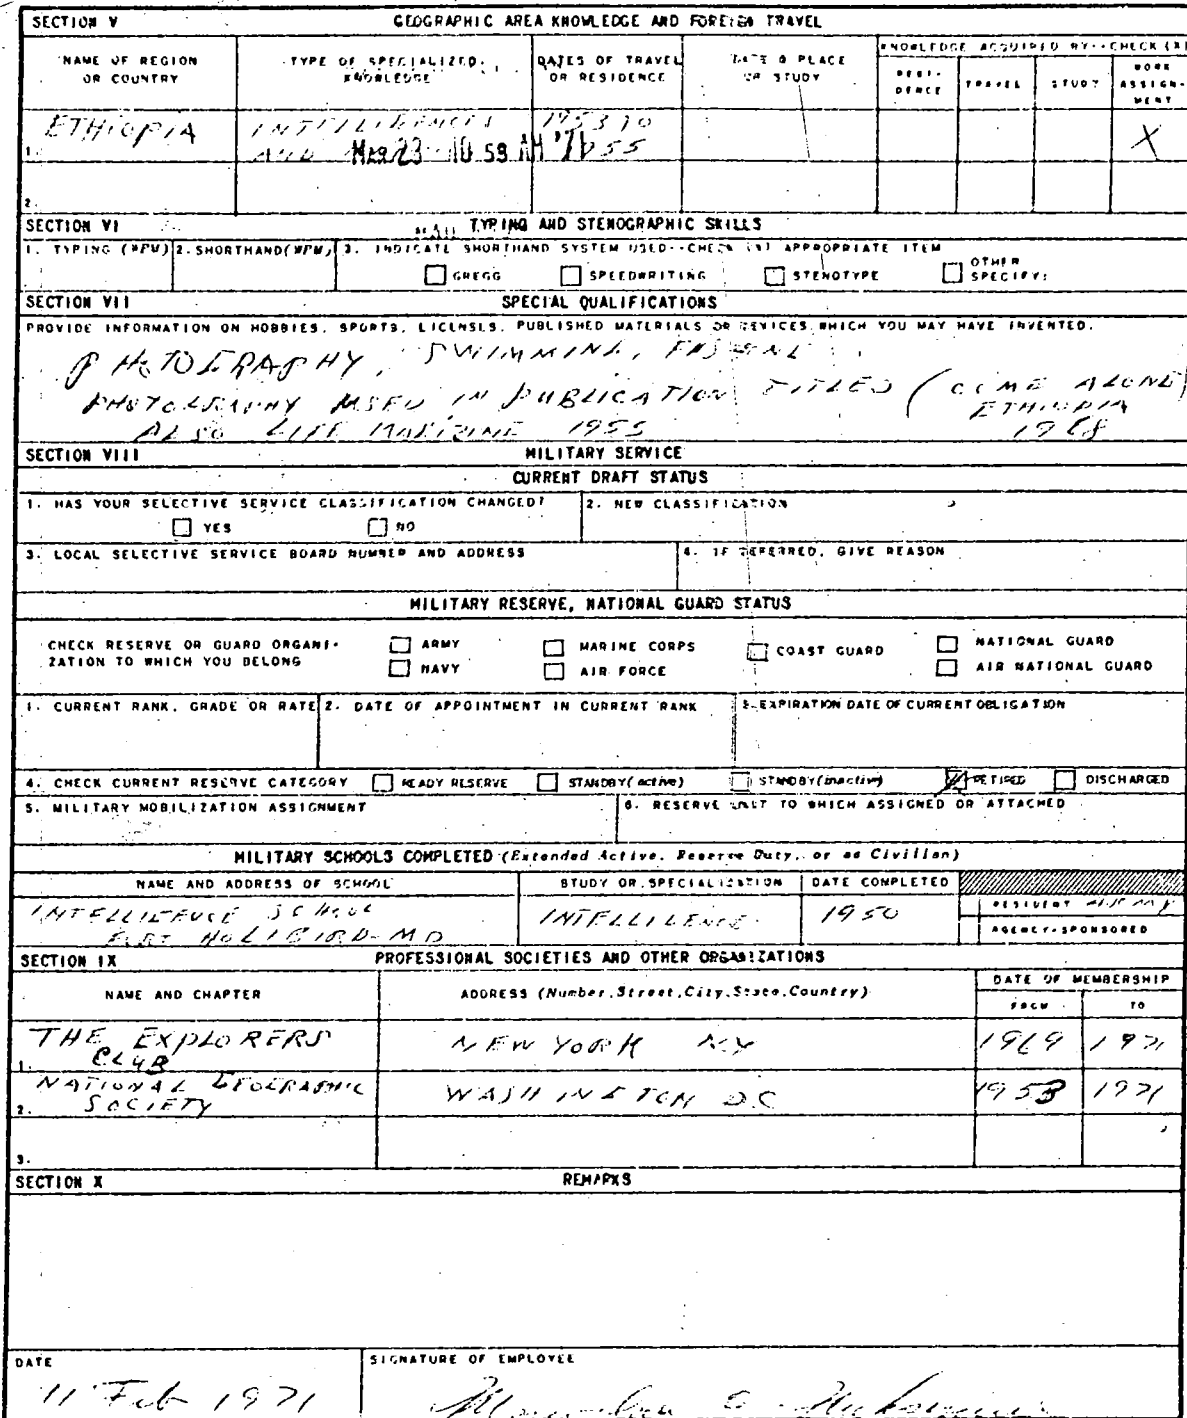 SECTION V GEOGRAPHIC AREA KNOWLEDGE AND FOREIGN TRAVEL
NAME OF REGION OR COUNTRY
TYPE OF SPECIALIZED KNOWLEDGE
DATES OF TRAVEL OR RESIDENCE
DATE & PLACE OF STUDY
KNOWLEDGE ACQUIRED BY--CHECK (X)
RESI-DENCE TRAVEL STUDY WORK ASSIGN-MENT
1. ETHIOPIA 1953 TO X
AND MAR 23 10 59 AM '71 55
2.
SECTION VI TYPING AND STENOGRAPHIC SKILLS
1. TYPING (WPM) 2. SHORTHAND(WPM) 3. INDICATE SHORTHAND SYSTEM USED--CHECK (X) APPROPRIATE ITEM
GREGG SPEEDWRITING STENOTYPE OTHER SPECIFY:
SECTION VII SPECIAL QUALIFICATIONS
PROVIDE INFORMATION ON HOBBIES, SPORTS, LICENSES, PUBLISHED MATERIALS OR DEVICES WHICH YOU MAY HAVE INVENTED.
PHOTOGRAPHY, SWIMMING,
PHOTOGRAPHY USED IN PUBLICATION TITLED (COME ALONG)
ETHIOPIA
ALSO LIFE MAGIZINE 1955
SECTION VIII MILITARY SERVICE
CURRENT DRAFT STATUS
1. HAS YOUR SELECTIVE SERVICE CLASSIFICATION CHANGED? 2. NEW CLASSIFICATION
YES NO
3. LOCAL SELECTIVE SERVICE BOARD NUMBER AND ADDRESS 4. IF DEFERRED, GIVE REASON
MILITARY RESERVE, NATIONAL GUARD STATUS
CHECK RESERVE OR GUARD ORGANI- ARMY MARINE CORPS COAST GUARD NATIONAL GUARD
ZATION TO WHICH YOU BELONG NAVY AIR FORCE AIR NATIONAL GUARD
1. CURRENT RANK, GRADE OR RATE 2. DATE OF APPOINTMENT IN CURRENT RANK 3. EXPIRATION DATE OF CURRENT OBLIGATION
4. CHECK CURRENT RESERVE CATEGORY READY RESERVE STANDBY(active) STANDBY(inactive) RETIRED DISCHARGED
5. MILITARY MOBILIZATION ASSIGNMENT 6. RESERVE UNIT TO WHICH ASSIGNED OR ATTACHED
MILITARY SCHOOLS COMPLETED (Extended Active, Reserve Duty, or as Civilian)
NAME AND ADDRESS OF SCHOOL STUDY OR SPECIALIZATION DATE COMPLETED
INTELLIGENCE SCHOOL INTELLIGENCE 1950 RESIDENT
FORT HOLIBIRD MD AGENCY-SPONSORED
SECTION IX PROFESSIONAL SOCIETIES AND OTHER ORGANIZATIONS
NAME AND CHAPTER ADDRESS (Number,Street,City,State,Country) DATE OF MEMBERSHIP
FROM TO
THE EXPLORERS NEW YORK NY 1969 1971
1. CLUB
NATIONAL GEOGRAPHIC WASHINGTON D.C 1953 1971
2. SOCIETY
3.
SECTION X REMARKS
DATE SIGNATURE OF EMPLOYEE
11 Feb 1971